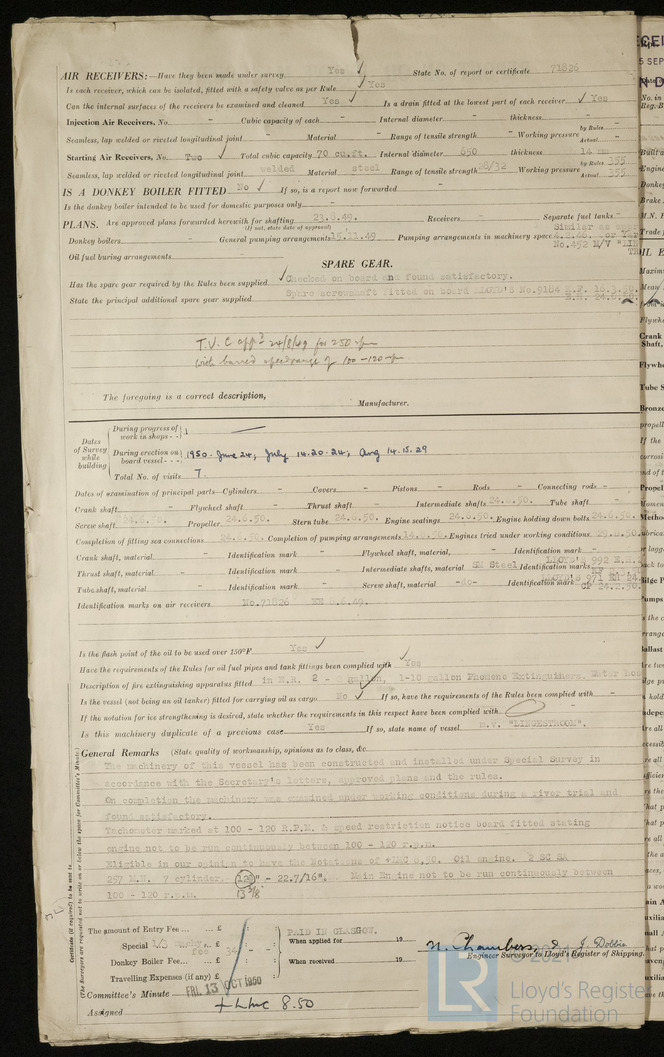 AIR RECEIVERS:—Have they been made under survey Yes ✓ State No. of report or certificate 71826
Is each receiver, which can be isolated, fitted with a safety valve as per Rule ✓ Yes
Can the internal surfaces of the receivers be examined and cleaned Yes ✓ Is a drain fitted at the lowest part of each receiver ✓ Yes
Injection Air Receivers, No. - Cubic capacity of each - Internal diameter - thickness -
Seamless, lap welded or riveted longitudinal joint - Material - Range of tensile strength - Working pressure by Rules - Actual -
Starting Air Receivers, No. Two ✓ Total cubic capacity 70 cu.ft. Internal diameter 650 thickness 14 mm
Seamless, lap welded or riveted longitudinal joint welded Material steel Range of tensile strength 28/32 Working pressure by Rules 355 Actual 355
IS A DONKEY BOILER FITTED No ✓ If so, is a report now forwarded -
Is the donkey boiler intended to be used for domestic purposes only -
PLANS. Are approved plans forwarded herewith for shafting 23.8.49. Receivers - Separate fuel tanks -
(If not, state date of approval)
Donkey boilers General pumping arrangements Pumping arrangements in machinery space
Similar as
No.452 M/V "LIN
Oil fuel burning arrangements
SPARE GEAR.
Has the spare gear required by the Rules been supplied ✓ Checked on board and found satisfactory.
State the principal additional spare gear supplied Spare screwshaft fitted on board LLOYD'S No.9184
T.V.C appd 24/8/49 for 250 rpm
with barred speed range of 100-120 rpm
The foregoing is a correct description,
Manufacturer.
Dates of Survey while building
During progress of work in shops - -
During erection on board vessel - - - 1950. June 24, July 14.20.24; Aug 14.15.29
Total No. of visits 7.
Dates of examination of principal parts—Cylinders - Covers - Pistons - Rods - Connecting rods -
Crank shaft - Flywheel shaft - Thrust shaft - Intermediate shafts 24.6.50. Tube shaft -
Screw shaft 24.6.50. Propeller 24.6.50. Stern tube 24.6.50. Engine seatings 24.6.50. Engine holding down bolts 24.6.50.
Completion of fitting sea connections 24.6.50. Completion of pumping arrangements Engines tried under working conditions
Crank shaft, material - Identification mark - Flywheel shaft, material - Identification mark -
Thrust shaft, material - Identification mark - Intermediate shafts, material SM Steel Identification marks LLOYD'S 992
Tube shaft, material - Identification mark - Screw shaft, material -do- Identification mark LLOYD'S 971
Identification marks on air receivers No.71826
Is the flash point of the oil to be used over 150°F. Yes ✓
Have the requirements of the Rules for oil fuel pipes and tank fittings been complied with ✓ Yes
Description of fire extinguishing apparatus fitted in E.R. 2 - gallon, 1-10 gallon Phomene Extinguishers. Water hose
Is the vessel (not being an oil tanker) fitted for carrying oil as cargo No ✓ If so, have the requirements of the Rules been complied with -
If the notation for ice strengthening is desired, state whether the requirements in this respect have been complied with
Is this machinery duplicate of a previous case Yes If so, state name of vessel m.v. "LINGESTROOM".
General Remarks (State quality of workmanship, opinions as to class, &c.
The machinery of this vessel has been constructed and installed under Special Survey in
accordance with the Secretary's letters, approved plans and the rules.
On completion the machinery was examined under working conditions during a river trial and
found satisfactory.
Tachometer marked at 100 - 120 R.P.M. & speed restriction notice board fitted stating
engine not to be run continuously between 100 - 120 r.p.m.
Eligible in our opinion to have the Notations of +LMC 8,50. Oil engine. 2 SC SA
257 M.N. 7 cylinder - 22.7/16". Main Engine not to be run continuously between
100 - 120 r.p.m. 13 3/8
Certificate (if required) to be sent to
(The Surveyors are requested not to write on or below the space for Committee's Minute.)
The amount of Entry Fee ... £ : :
Special fee ... £ 34 : :
Donkey Boiler Fee... ... £ : :
Travelling Expenses (if any) £ : :
PAID IN GLASGOW.
When applied for 19
When received 19
N. Chambers, & J. Dobbie
Engineer Surveyor to Lloyd's Register of Shipping.
Committee's Minute FRI. 13 OCT 1950
Assigned + LMC 8.50
© 2021
LR
Lloyd's Register
Foundation